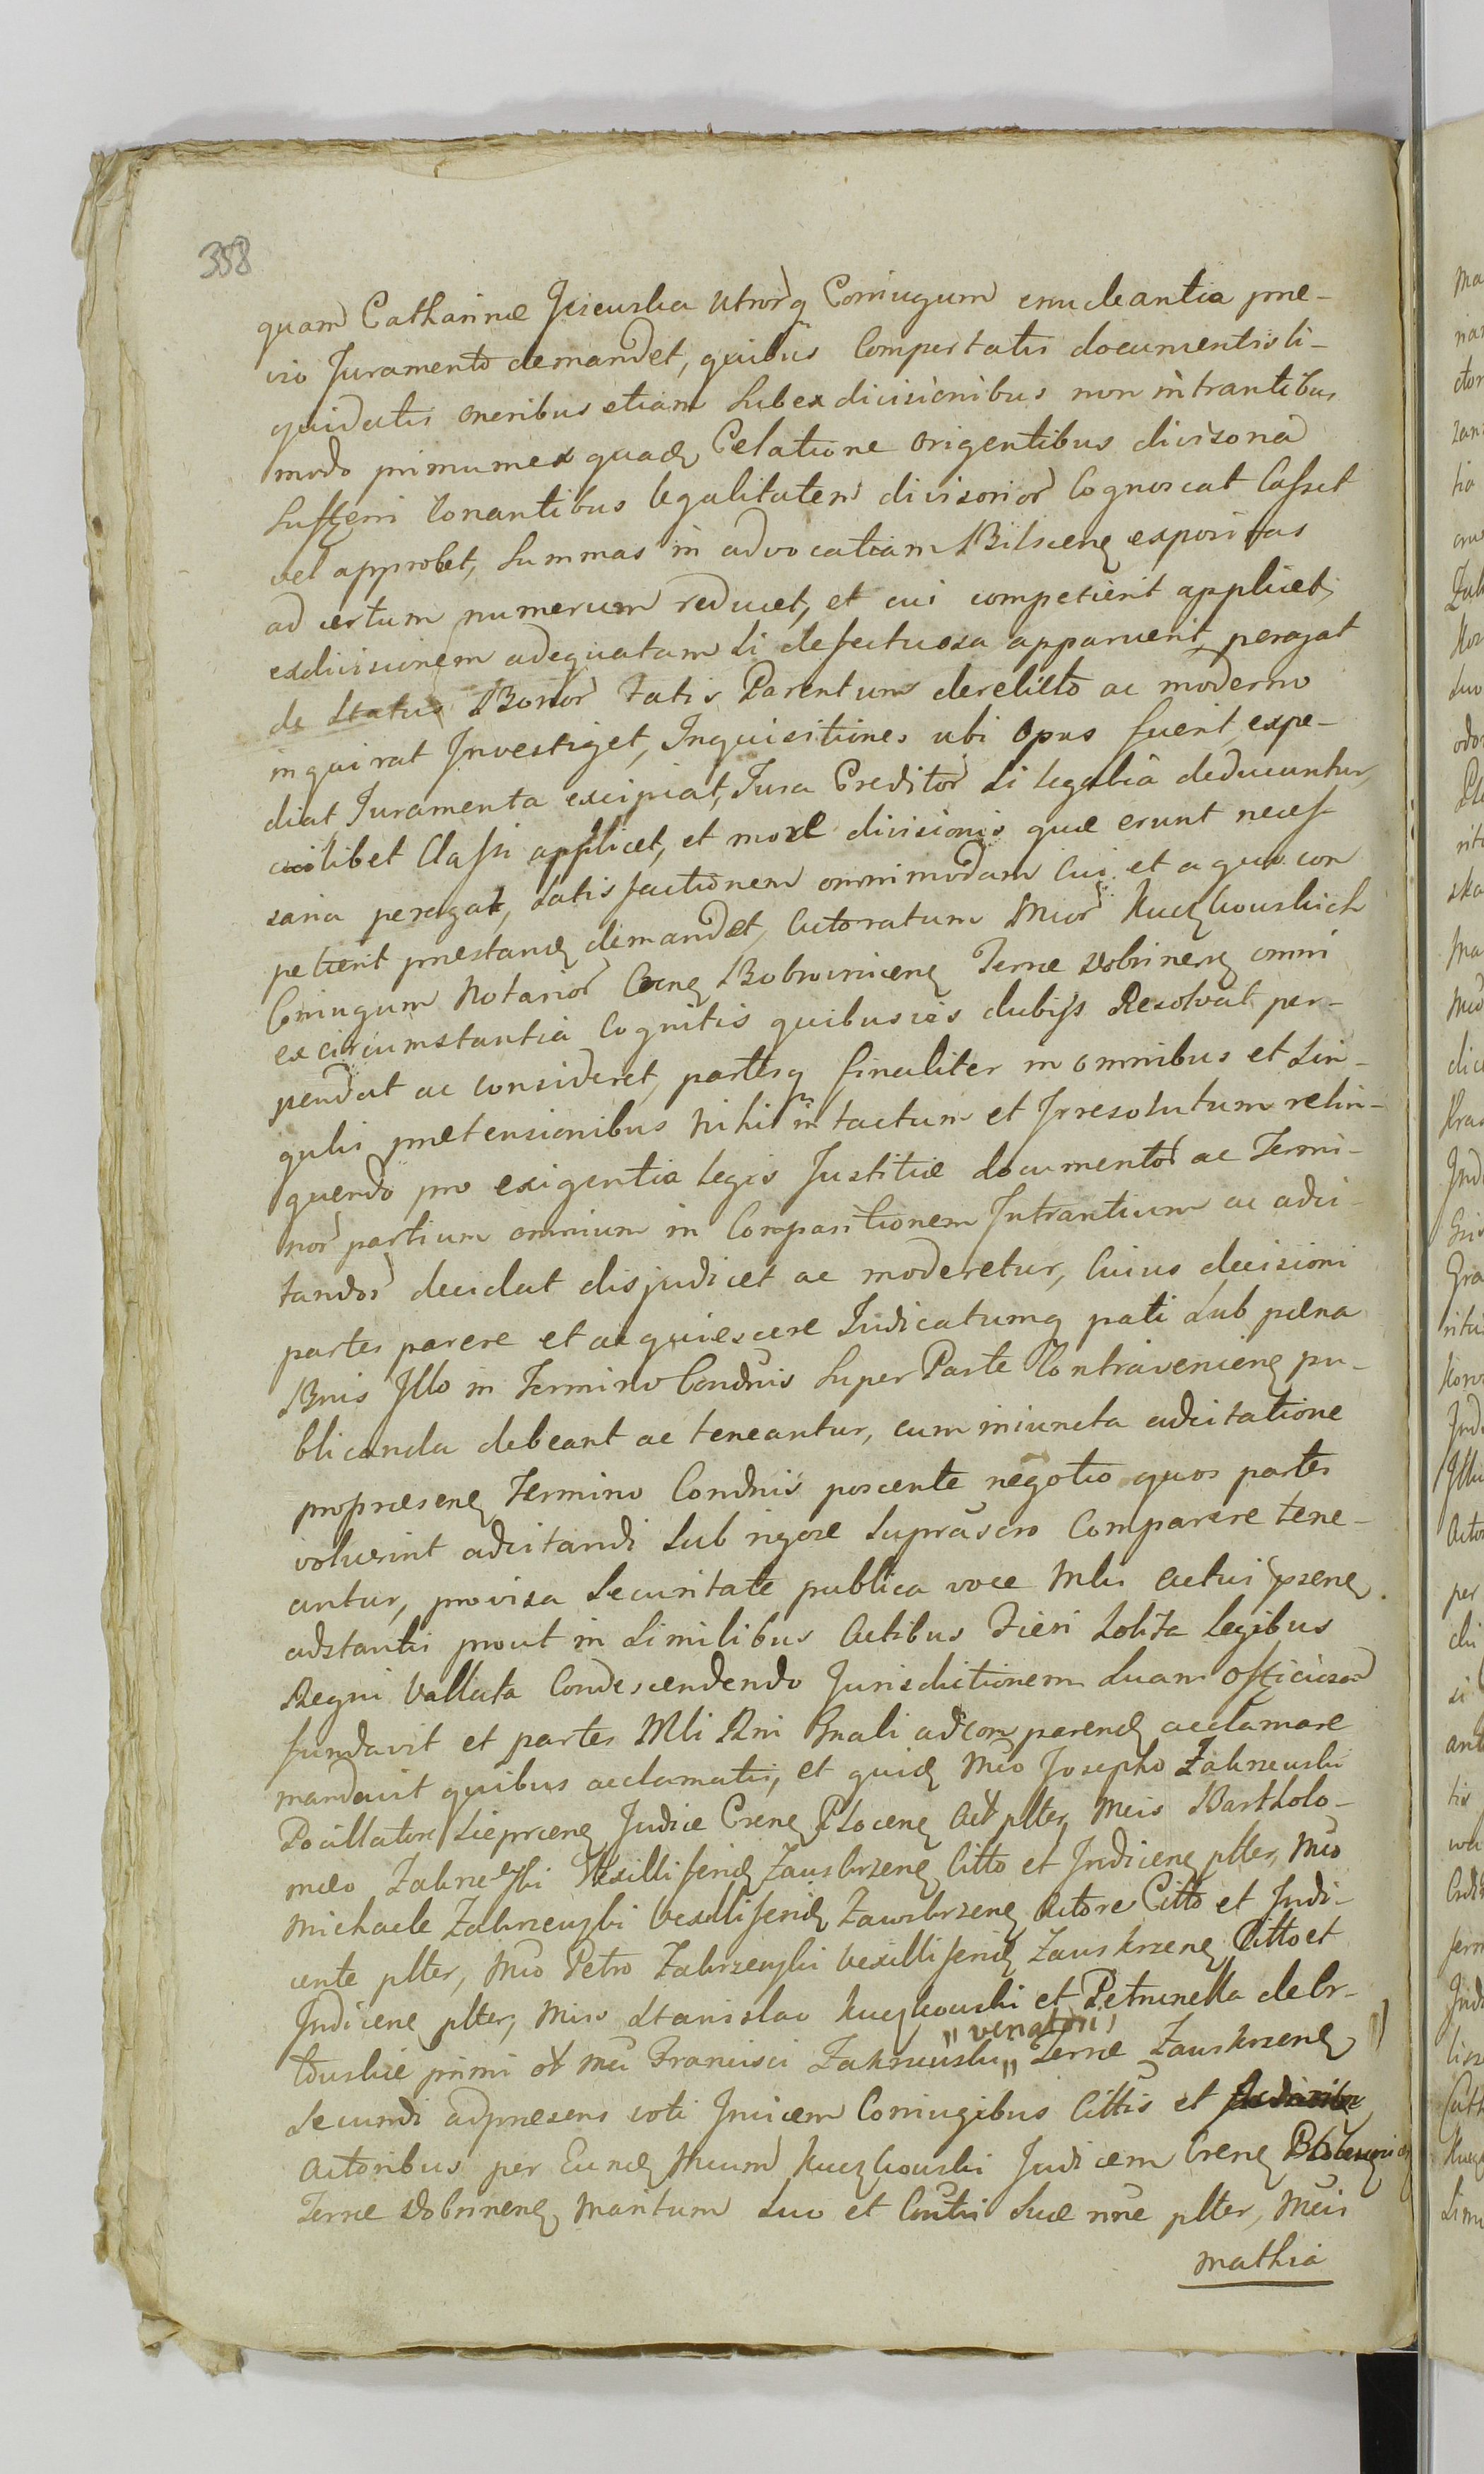 358
quam Catharinæ utrorq Coniugum enucleantia præ-
vio Juramento demandet, quibus Comportatis documentis li-
quidatis oneribus etiam Sub exdivisionibus non intrantibus
modo primum ex quaq Celatione origentibus divisoria
legalitatem divisorior Cognoscat Casset
vel approbet, Summas in advocatiam Bilscenq expositas
ad certum numerum reducet, et cui competierit applicet,
exdivisionem adequatam Si defectuosa apparuerit, peragat
de Statu Bonor Fatis Parentum derelicto ac moderno
inquirat Investiget, Inquisitiones ubi opus fuerit expe-
diat Juramenta excipiat, Jura Creditor Si legalia deducuntur,
cuilibet Classi applicet, et more divisionis quæ erunt necess
saria peragat, Satisfactionem omnimodam Cui et a quo con
petierit præstandq demandet, Actoratum Mcor Kuczkowskich
Coniugum Notarior Bobrownicenq Terræ Dobrinenq omni
ex circumstantia Cognitis quibusvis dubijs Resolvat per-
pendat ac consideret, partesq finaliter in omnibus et Sin-
gulis prætensionibus Nihil intactum et Irresolutum relin-
quendo pro exigentia legis Justitiæ documentor ac Termi-
nor partium omnium in Comparitionem Intrantium ac adci-
tandor decidat disjudicet ac moderetur, Cuius decisioni
partes parere et acquiescere Judicatumq pati Sub pœna
Bnis Illo in Termino Condnis Super Parte Contravenienq pu-
blicanda debeant ac teneantur, cum iniuncta adcitatione
pro præsenq Termino Condnis poscente negotio quos partes
voluerint adcitandi Sub rigore Suprascro Comparere tene-
antur, provisa Securitate publica voce Mlis actui præsenq
adstantis prout in Similibus Actibus Fieri Solita Legibus
Regni Vallata Condescendendo Jurisdictionem Suam officiosa
fundavit et partes Mli Rni Gnali ad comparendq acclamare
mandavit quibus acclamatis, et quidq Mco Josepho Zakrzewski
Pocillatore Sieprcenq Judice Crenq Plocenq Act plter, Mcis Bartholo-
mæo Zakrzewski Vexilliferidq Zauskrzenq Citto et Indicenq plter, Mco
Michaele Zakrzewski Vexilliferidq Zawskrzenq Actore Citto et Indi-
cente plter, Mco Petro Zakrzewski Vexilliferidq Zauskrzenq Citto et
Indicene plter, Mcis Stanislao Kuczkowski et Petrunella de Or-
łowskie primi et Mci Francisci Zakrzewski "venatori" Terræ Zauskrzenq
Secundi ad præsens voti Invicem Coniugibus Cittis et
Actoribus per Eundq Mcum Kuczkowski Judicem Crenq
Terræ Dobrinenq Maritum Suo et Conthis Suæ nne plter, Mcis
Mathia